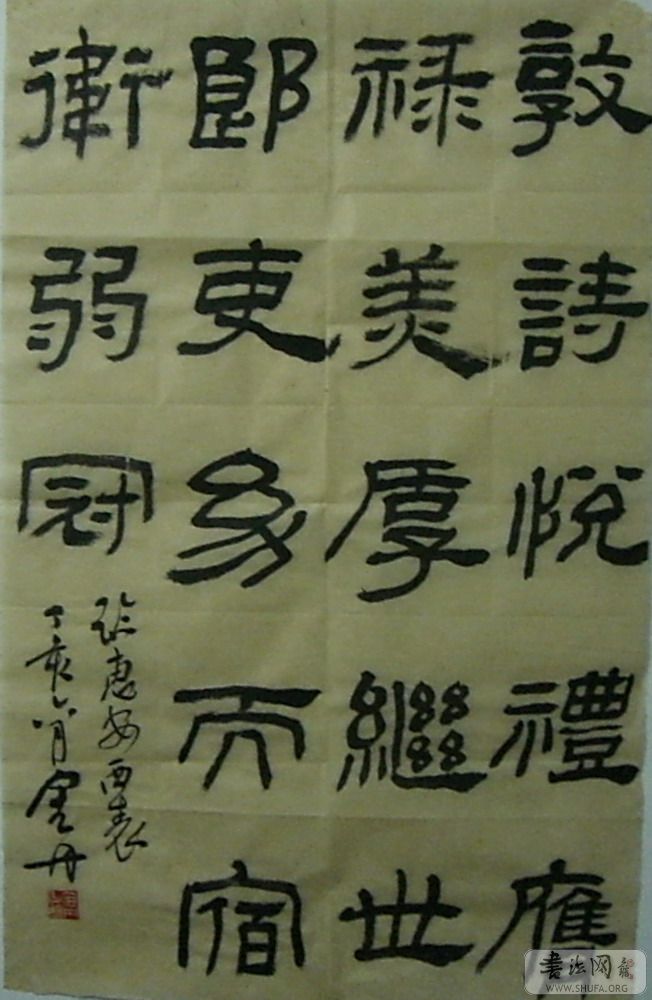 敦詩悦禮膺
禄美厚繼世
郎吏幼而宿
衛弱冠
臨惠安西表
丁亥八月丹
書法网
WWW.SHUFA.ORG